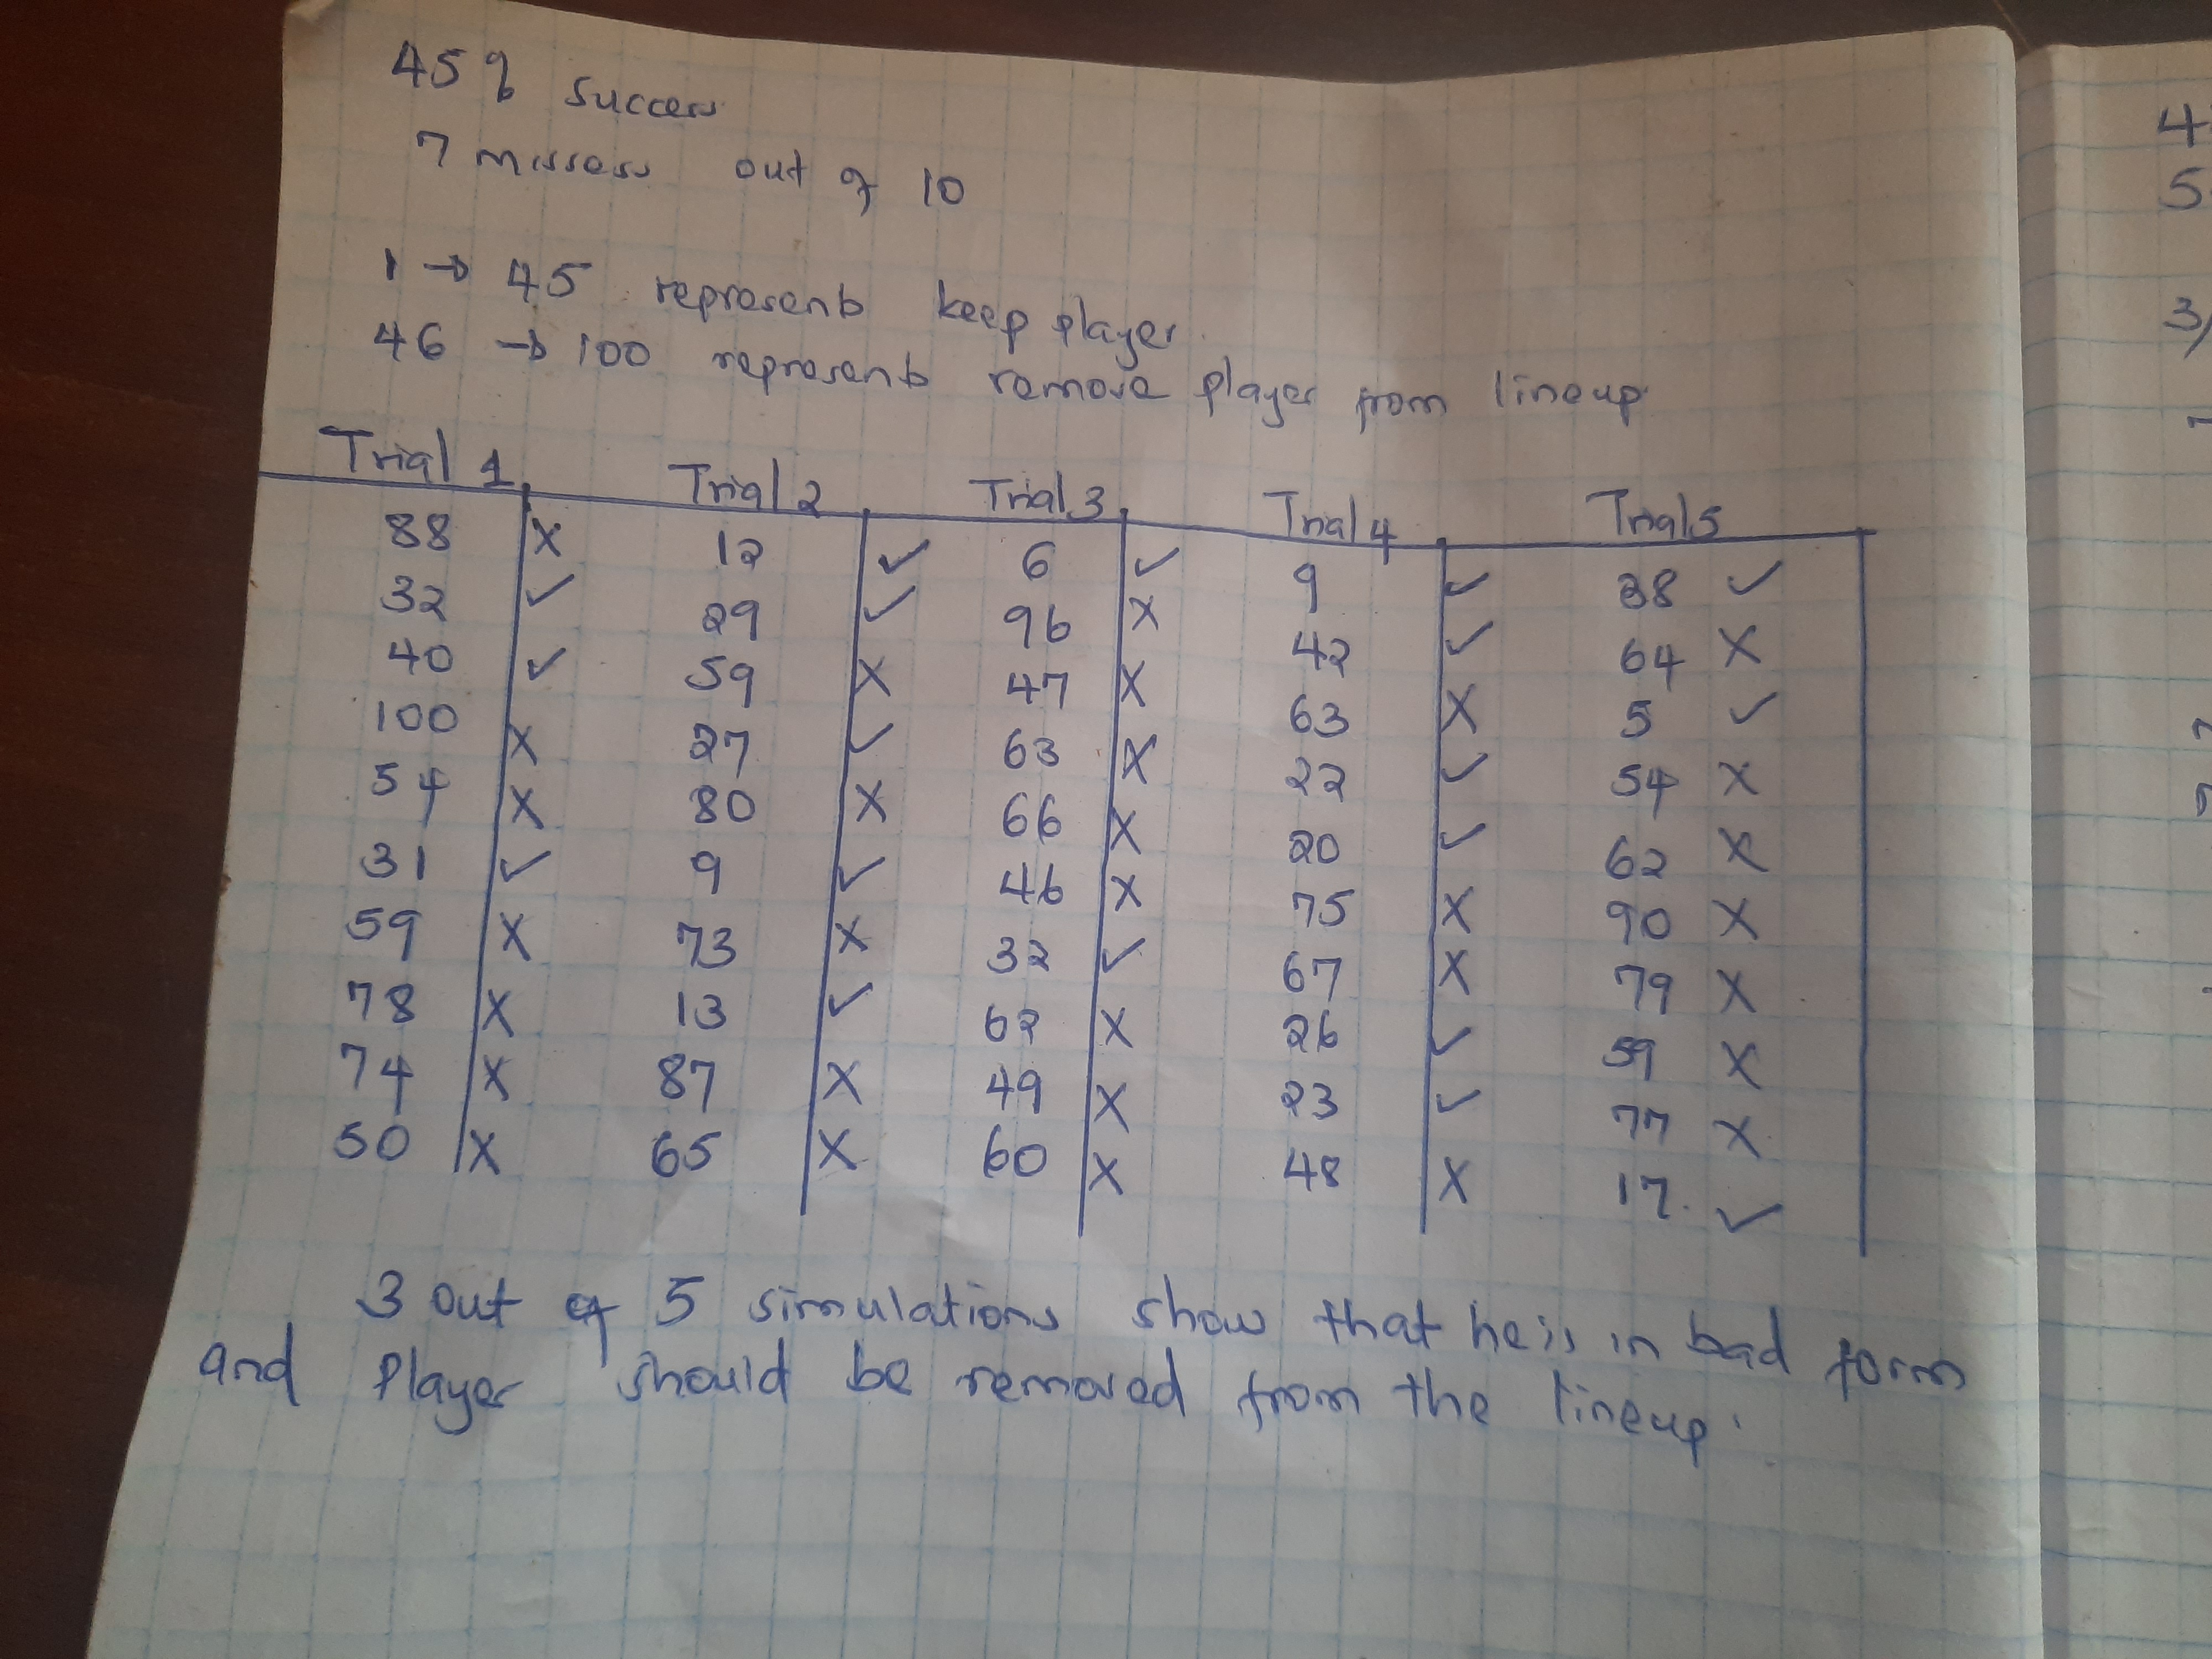 45% success
7 misses out of 10
1 → 45 represent keep player
46 → 100 represent remove player from lineup
Trial 1 Trial 2 Trial 3 Trial 4 Trial 5
88 X 12 ✓ 6 ✓ 9 ✓ 28 ✓
32 ✓ 29 ✓ 96 X 42 ✓ 64 X
40 ✓ 59 X 47 X 63 X 5 ✓
100 X 27 ✓ 63 X 22 ✓ 54 X
54 X 80 X 66 X 20 ✓ 62 X
31 ✓ 9 ✓ 46 X 75 X 90 X
59 X 73 X 32 ✓ 67 X 79 X
78 X 13 ✓ 62 X 26 ✓ X
74 X 87 X 49 X 23 ✓ 77 X
50 X 65 X 60 X 48 X 17 ✓
3 out of 5 simulations show that he is in bad form
and player should be removed from the lineup.
4
5
3/